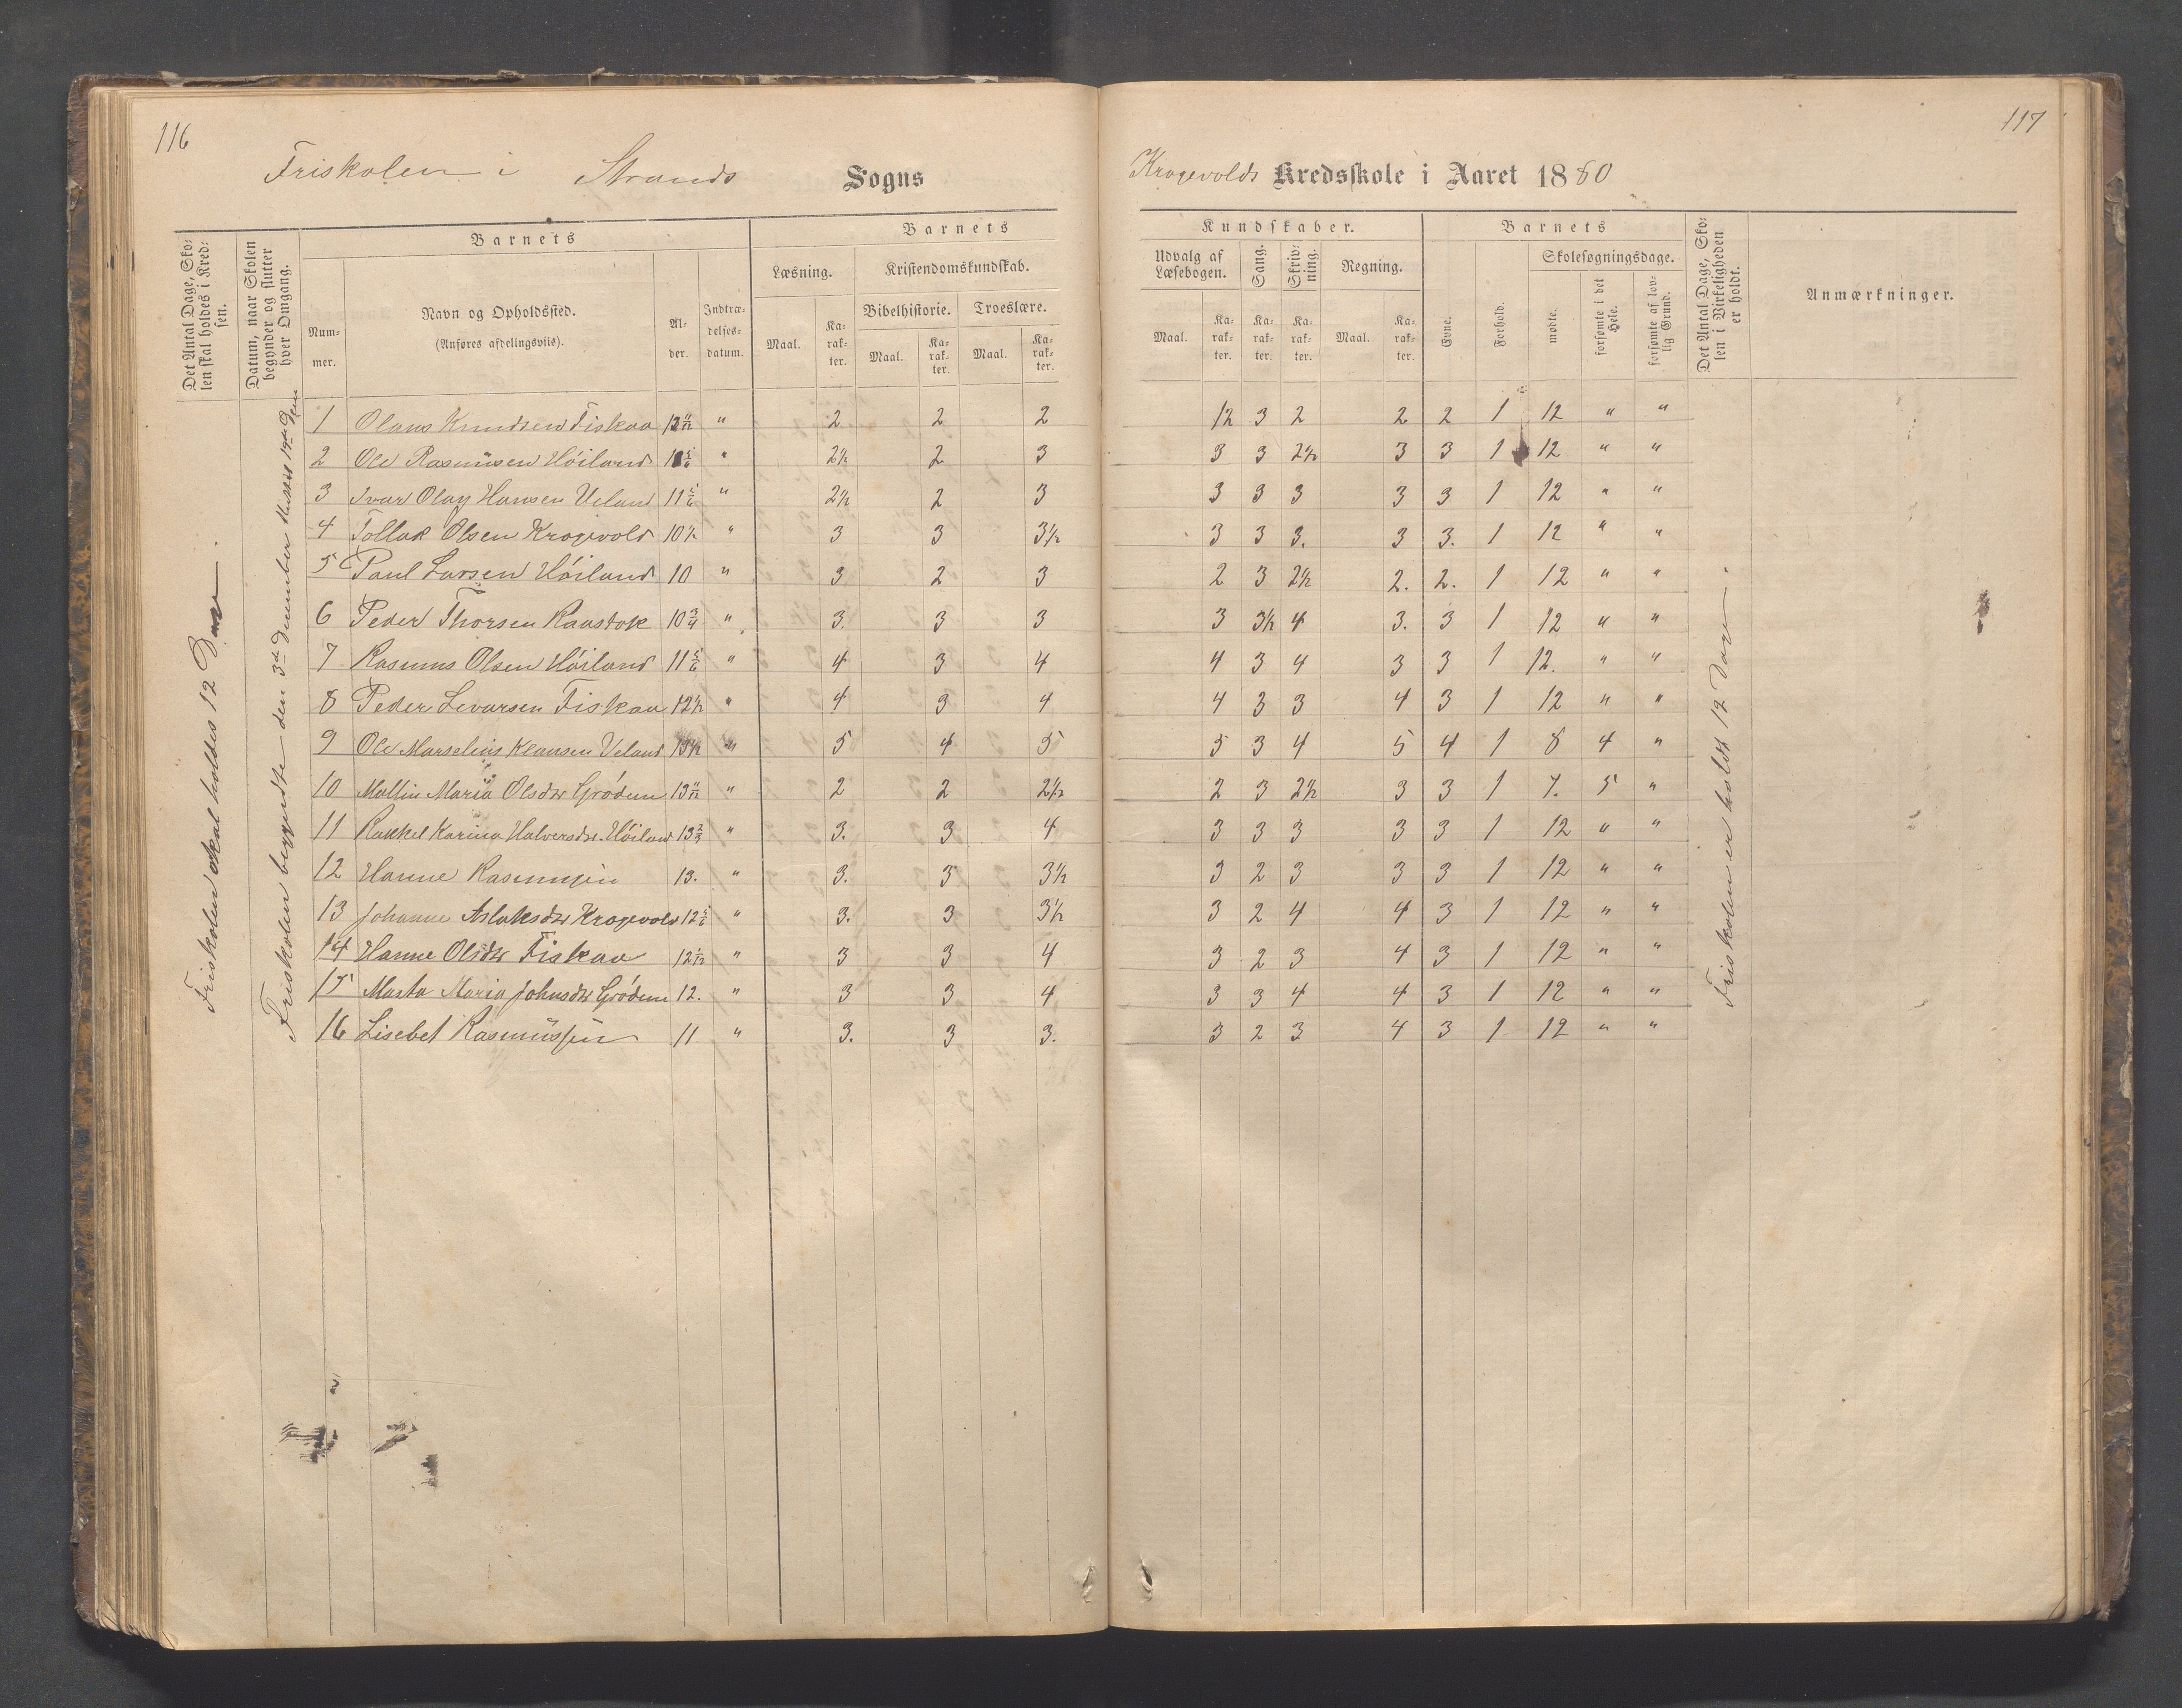 116
Friskolen i Strands Sogns
Det Antal Dage, Skolen skal holdes i Kredsen.
Datum, naar Skolen begynder og slutter hver Omgang.
Barnets
Nummer.
Navn og Opholdssted.
(Anføres afdelingsviis).
Alder.
Indtrædelsesdatum.
Barnets
Læsning.
Kristendomskundskab.
Bibelhistorie. Troeslære.
Maal. Karakter. Maal. Karakter. Maal. Karakter.
Friskolen skal holdes 12 Dage.
Friskolen begyndte den 3de December sluttet 19de Dem
1 Olaus Knudsen Fiskaa 12 11/12 " 2 2 2
2 Ole Rasmüsen Höiland " 2½ 2 3
3 Ivar Olay Hansen Veland 11 5/6 " 2½ 2 3
4 Tollak Olsen Krogevold 10½ " 3 3 3½
5 Paul Larsen Höiland 10 " 3 2 3
6 Peder Thorsen Raustok 10¾ " 3 3 3
7 Rasmus Olsen Höiland 11 5/6 " 4 3 4
8 Peder Levarsen Fiskaa 12½ " 4 3 4
9 Ole Marselius Klausen Veland 13½ " 5 4 5
10 Mallin Maria Olsdtr Grödem 13 11/12 " 2 2 2½
11 Rakkel Karina Halversdtr. Höiland 13 2/3 " 3. 3 4
12 Hanne Rasmussen 13. " 3. 3 3½
13 Johanne Aslaksdtr Krogevold 12 5/6 " 3. 3 3½
14 Hanne Olsdtr Fiskaa 12 1/12 " 3 3 4
15 Marta Maria Johnsdtr Grödem 12. " 3 3 4
16 Lisebet Rasmüssen 11 " 3. 3 3.
117
Krogevolds Kredsskole i Aaret 1880
Kundskaber.
Udvalg af Læsebogen. Sang. Skrivning. Regning.
Maal. Karakter. Karakter. Karakter. Maal. Karakter.
Barnets
Evne. Forhold.
Skolesøgningsdage.
mødte. forsømte i det Hele. forsømte af lovlig Grund.
Det Antal Dage, Skolen i Virkeligheden er holdt.
Anmærkninger.
12 3 2 2 2 1 12 " "
3 3 2½ 3 3 1 12 " "
3 3 3 3 3 1 12 " "
3 3 3. 3 3. 1 12 " "
2 3 2½ 2. 2. 1 12 " "
3 3½ 4 3. 3 1 12 " "
4 3 4 3 3 1 12. " "
4 3 3 4 3 1 12 " "
5 3 4 5 4 1 8 4 "
2 3 2½ 3 3 1 7. 5 "
3 3 3 3 3 1 12 " "
3 2 3 3 3 1 12 " "
3 2 4 4 3 1 12 " "
3 2 3 4 3 1 12 " "
3 3 4 4 3 1 12 " "
3 2 3 4 3 1 12 " "
Friskolen er holdt 12 Dage.